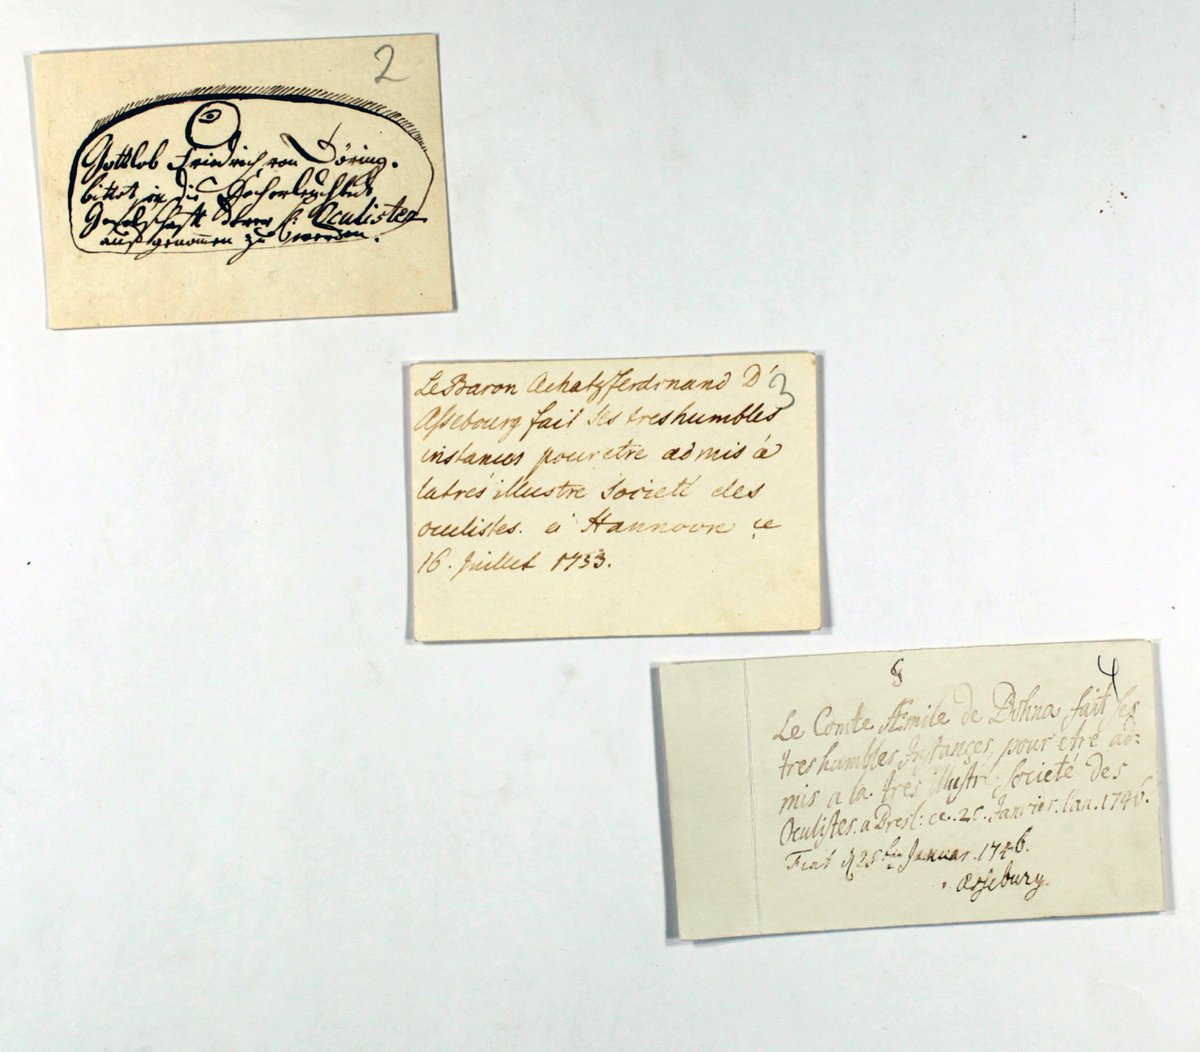 2
Gottlob Friedrich von Döring.
bittet in die Hocherleuchtete
Geselschafft Oculisten
auffgenommen zu werden.
3
Le Baron Achatz ferdinand D'
Assebourg fait ses treshumbles
instances pour etre admis á
latrés illustre Societé des
oculistes. a Hannovre ce
16. Juillet 1753.
8
4
Le Comte Æmile de Dohna fait ses
tres humbles Instances pour etre ad=
mis a la tres illustre Societé des
Oculistes. a Dresd: ce. 25. Janvier. l'an. 1746.
Fiat 25 Januar. 1746.
Asseburg.